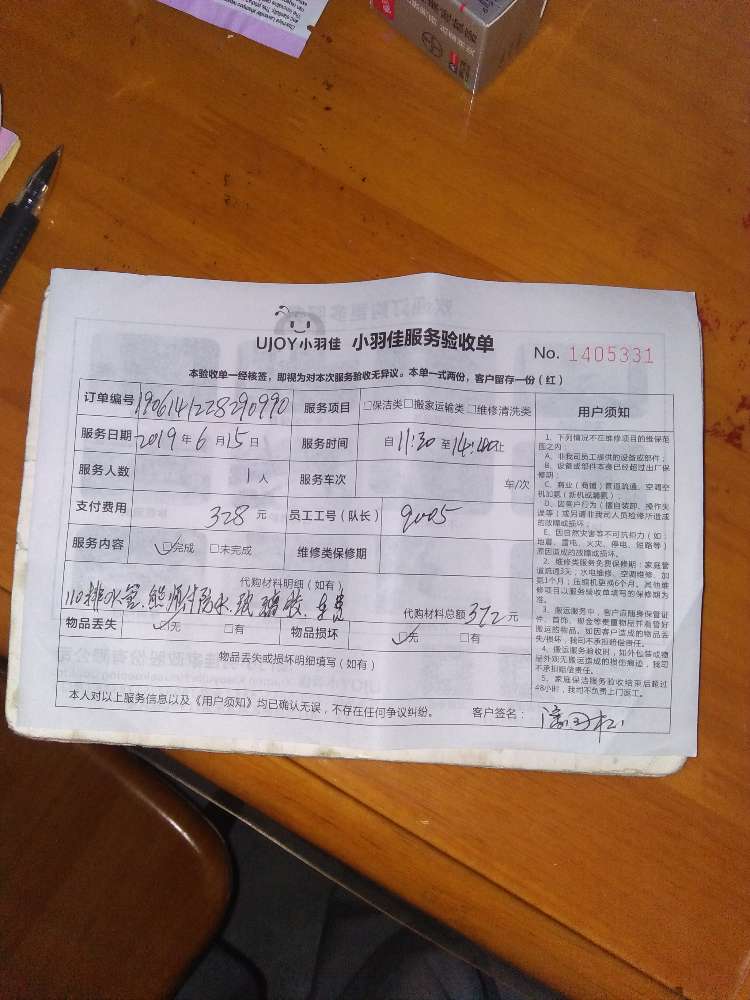 UJOY小羽佳 小羽佳服务验收单
No. 1405331
本验收单一经核签，即视为对本次服务验收无异议。本单一式两份，客户留存一份（红）
订单编号 1906141228290990 服务项目 □保洁类□搬家运输类□维修清洗类
服务日期 2019 年 6 月 15 日 服务时间 自 11:30 至 14:40 止
服务人数 1 人 服务车次 车/次
支付费用 328 元 员工工号（队长） 9005
服务内容 ☑完成 □未完成 维修类保修期
代购材料明细（如有）
110排水管. 防水. 玻璃胶. 车费 代购材料总额 372 元
物品丢失 ☑无 □有 物品损坏 ☑无 □有
物品丢失或损坏明细填写（如有）
本人对以上服务信息以及《用户须知》均已确认无误，不存在任何争议纠纷。 客户签名：
用户须知
1、下列情况不在维修项目的维保范
围之内：
A、非我司员工提供的设备或部件；
B、设备或部件本身已经超过出厂保
修期；
C、商业（商铺）管道疏通、空调空
机加氟（新机或漏氟）
D、因客户行为（擅自装卸、操作失
误等）或另请非我司人员检修所造成
的故障或损坏；
E、因自然灾害等不可抗拒力（如：
地震、雷电、火灾、停电、短路等）
原因造成的故障或损坏。
2、维修类服务免费保修期：家庭管
道疏通3天；水电维修、空调维修、加
氟1个月；压缩机更换6个月。其他维
修项目以服务验收单填写的保修期为
准。
3、搬运服务中，客户应随身保管证
件、首饰、现金等贵重物品并有管好
搬运的物品，如因客户造成的物品丢
失/损坏，我司不承担赔偿责任。
4、搬运服务验收时，如外包装或物
品外观无搬运造成的损伤痕迹，我司
不承担赔偿责任。
5、家庭保洁服务验收结束后超过
48小时，我司不负责上门返工。